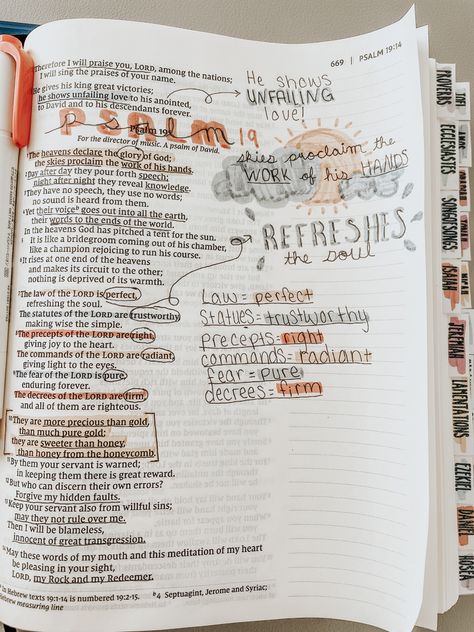 669 | PSALM 19:14
Therefore I will praise you, LORD, among the nations;
I will sing the praises of your name.
He gives his king great victories;
he shows unfailing love to his anointed,
to David and to his descendants forever.
He shows
UNFAILING
love!
PSALM 19
psalm
Psalm 19
For the director of music. A psalm of David.
1 The heavens declare the glory of God;
the skies proclaim the work of his hands.
2 Day after day they pour forth speech;
night after night they reveal knowledge.
3 They have no speech, they use no words;
no sound is heard from them.
4 Yet their voice b goes out into all the earth,
their words to the ends of the world.
In the heavens God has pitched a tent for the sun.
5 It is like a bridegroom coming out of his chamber,
like a champion rejoicing to run his course.
6 It rises at one end of the heavens
and makes its circuit to the other;
nothing is deprived of its warmth.
7 The law of the LORD is perfect,
refreshing the soul.
The statutes of the LORD are trustworthy,
making wise the simple.
8 The precepts of the LORD are right,
giving joy to the heart.
The commands of the LORD are radiant,
giving light to the eyes.
9 The fear of the LORD is pure,
enduring forever.
The decrees of the LORD are firm,
and all of them are righteous.
10 They are more precious than gold,
than much pure gold;
they are sweeter than honey,
than honey from the honeycomb.
11 By them your servant is warned;
in keeping them there is great reward.
12 But who can discern their own errors?
Forgive my hidden faults.
13 Keep your servant also from willful sins;
may they not rule over me.
Then I will be blameless,
innocent of great transgression.
14 May these words of my mouth and this meditation of my heart
be pleasing in your sight,
LORD, my Rock and my Redeemer.
In Hebrew texts 19:1-14 is numbered 19:2-15. b4 Septuagint, Jerome and Syriac;
Hebrew measuring line
skies proclaim the
WORK of his HANDS
REFRESHES
the soul
Law = perfect
Statues = trustworthy
precepts = right
commands = radiant
fear = pure
decrees = firm
PROVERBS
ECCLESIASTES
SONG OF SONGS
ISAIAH
JEREMIAH
LAMENTATIONS
DANIEL
HOSEA